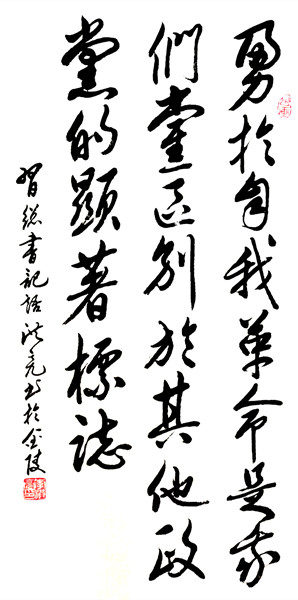 勇於自我革命是我
們黨區别於其他政
黨的顯著標誌
習總書記語洪亮书於金陵